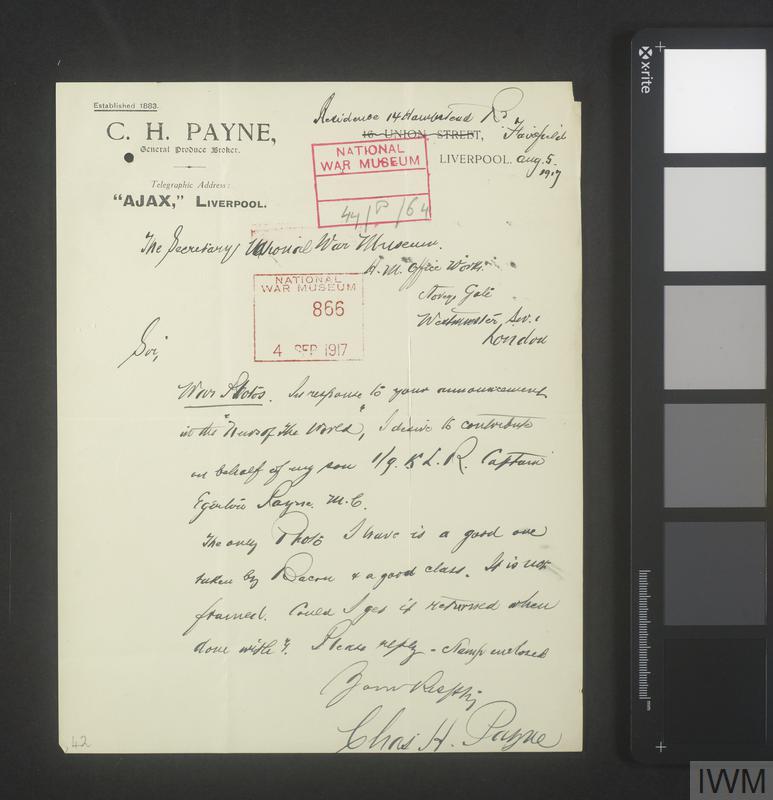 Established 1883.
C. H. PAYNE,
General Produce Broker.
Telegraphic Address:
"AJAX," LIVERPOOL.
Residence 14 Hampstead Rd
16, UNION STREET, Fairfield
LIVERPOOL. Aug. 5.
1917
NATIONAL
WAR MUSEUM
44/P/64
The Secretary National War Museum.
H. M. Office Works.
Storeys Gate
Westminster S.W.1
London
NATIONAL
WAR MUSEUM
866
4 SEP 1917
Sir,
War Photos. In response to your announcement
in the "News of the World", I desire to contribute
on behalf of my son 1/9. K L. R. Captain
Egerton Payne. M.C.
The only Photo I have is a good one
taken by Bacon & a good class. It is not
framed. Could I get it returned when
done with? Please reply - stamp enclosed
Yours Respfly
Chas H. Payne
42
x-rite
mm
IWM